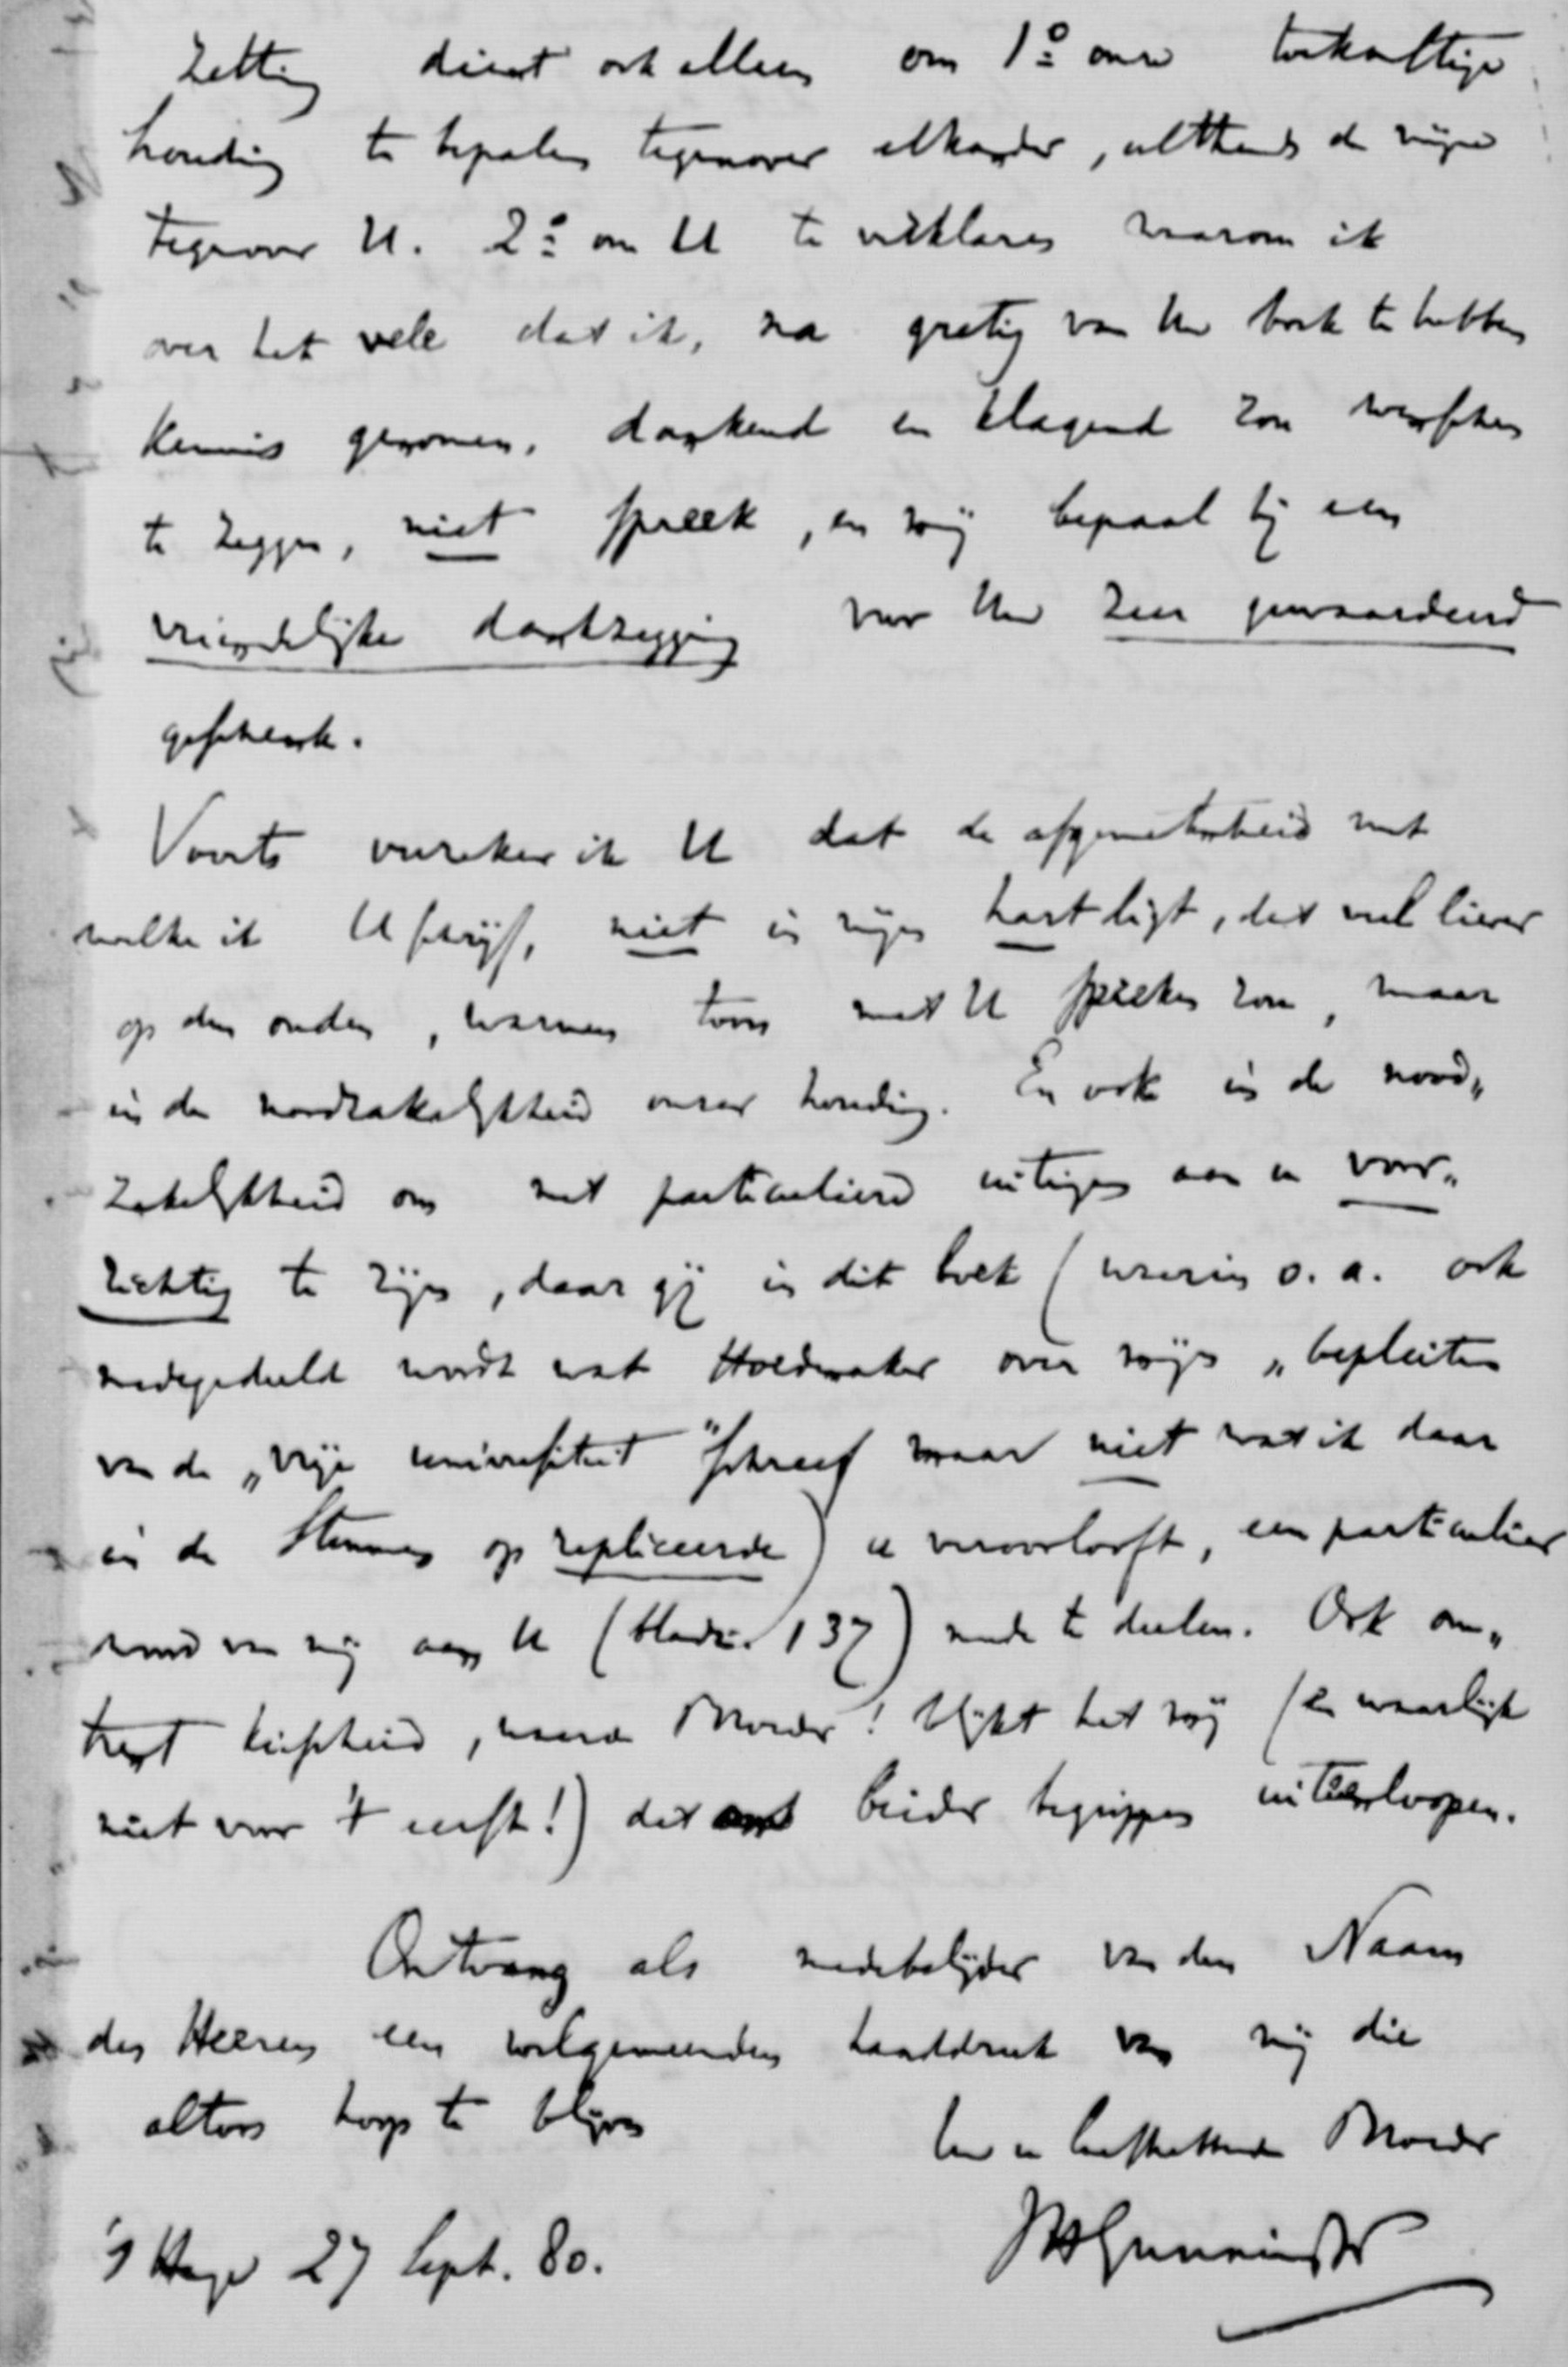 zetting dient ook alleen om 1º onze toekomstige
houding te bepalen tegenover elkander, althands de mijne
tegenover U. 2º om U te verklaren waarom ik
over het vele dat ik, na gretig van Uw boek te hebben
kennis genomen, dankend en klagend zou wenschen
te zeggen, niet spreek, en mij bepaal bij een
vriendelijke dankzegging voor Uw zeer gewaardeerd
geschenk.
Voorts verzeker ik U dat de afgemetenheid met
welke ik U schrijf, niet in mijn hart ligt, dat veel liever
op den ouden, warmen toon met U spreken zou, maar
in de noodzakelijkheid onzer houding. En ook in de nood„
zakelijkheid om met particuliere uitingen aan u voor„
zichtig te zijn, daar gij in dit boek (waarin o.a. ook
medegedeeld wordt wat Hoedemaker over mijn „bepleiten
van de „vrije universiteit" schreef maar niet wat ik daar
in de Stemmen op repliceerde) u veroorlooft, een particulier
woord van mij aan U (bladz. 137) mede te deelen. Ook om„
trent kieschheid, waarde Broeder! blijkt het mij (en waarlijk
niet voor 't eerst!) dat beider begrippen uiteenloopen.
Ontvang als medebelijder van den Naam
des Heeren een welgemeenden handdruk van mij die
altoos hoop te blijven
Uw u liefhebbende Broeder
JHGunning Jr
's Hage 27 Sept. 80.